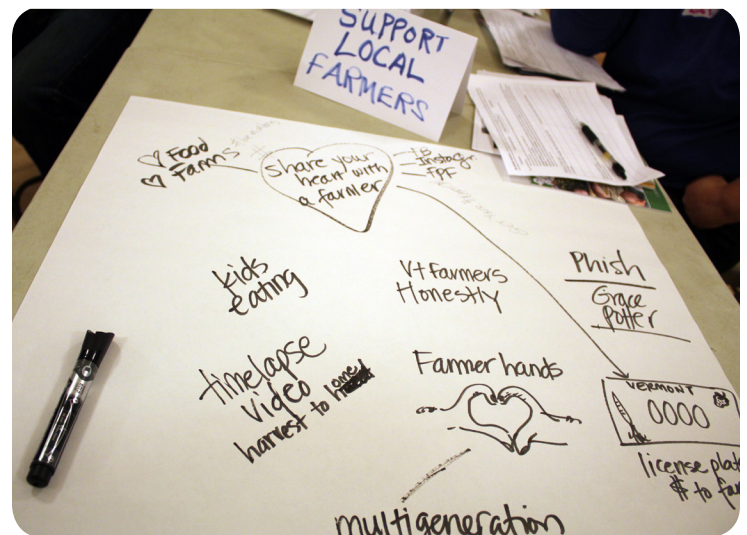 SUPPORT
LOCAL
FARMERS
♡ Food
♡ Farms
Share your
heart with
a farmer
FPF
kids
eating
Vt Farmers
Honestly
Phish
Grace
Potter
timelapse
video
harvest to
Farmer hands
VERMONT
0000
license
$ to
multigeneration